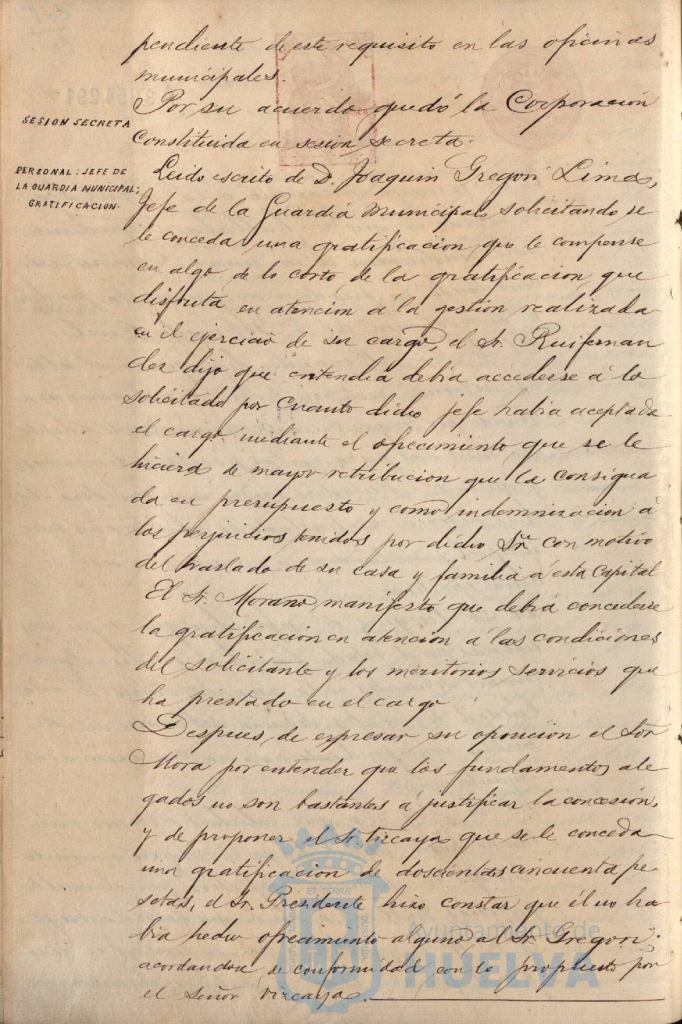 pendiente de este requisito en las oficinas
municipales.
Por su acuerdo quedó la Corporación
SESION SECRETA
Constituida en sesion secreta.
PERSONAL: JEFE DE
LA GUARDIA MUNICIPAL;
GRATIFICACION.
Leido escrito de D. Joaquin Gregori Lima,
Jefe de la Guardia Municipal, solicitando se
le conceda una gratificacion que le compense
en algo de lo corto de la gratificacion que
disfruta en atencion á la gestion realizada
en el ejercicio de su cargo, el Sr. Ruifernan
dez dijo que entendia debia accederse á lo
solicitado por cuanto dicho jefe habia aceptado
el cargo mediante el ofrecimiento que se le
hiciera de mayor retribucion que la consigna
da en presupuesto y como indemnizacion á
los perjuicios tenidos por dicho Sr. con motivo
del traslado de su casa y familia á esta Capital
El Sr. Morano manifestó que debia concederse
la gratificacion en atencion á las condiciones
del solicitante y los meritorios servicios que
ha prestado en el cargo
Despues de expresar su oposicion el Sor
Mora por entender que los fundamentos ale
gados no son bastantes á justificar la concesión,
y de proponer el Sr. Vizcaya que se le conceda
una gratificacion de doscientas cincuenta pe
setas, el Sr. Presidente hizo constar que él no ha
bia hecho ofrecimiento alguno al Sr. Gregori;
acordandose de conformidad con lo propuesto por
el Señor Vizcaya.
Ayuntamiento de
HUELVA